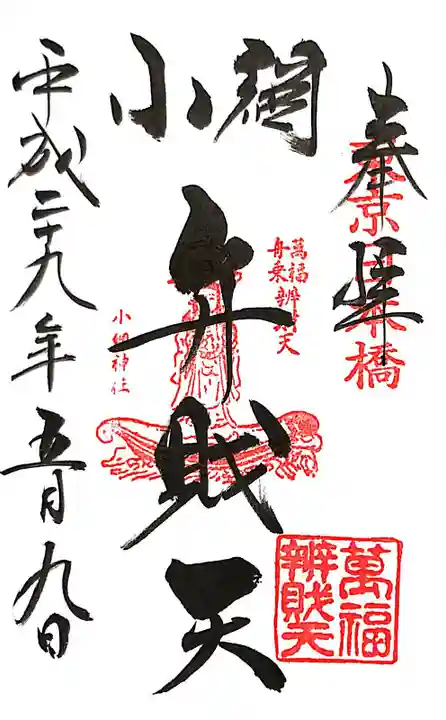 奉拝
東京日本橋
小網
弁財天
萬福
舟乗弁財天
小網神社
萬福
辨財天
平成二十九年五月九日